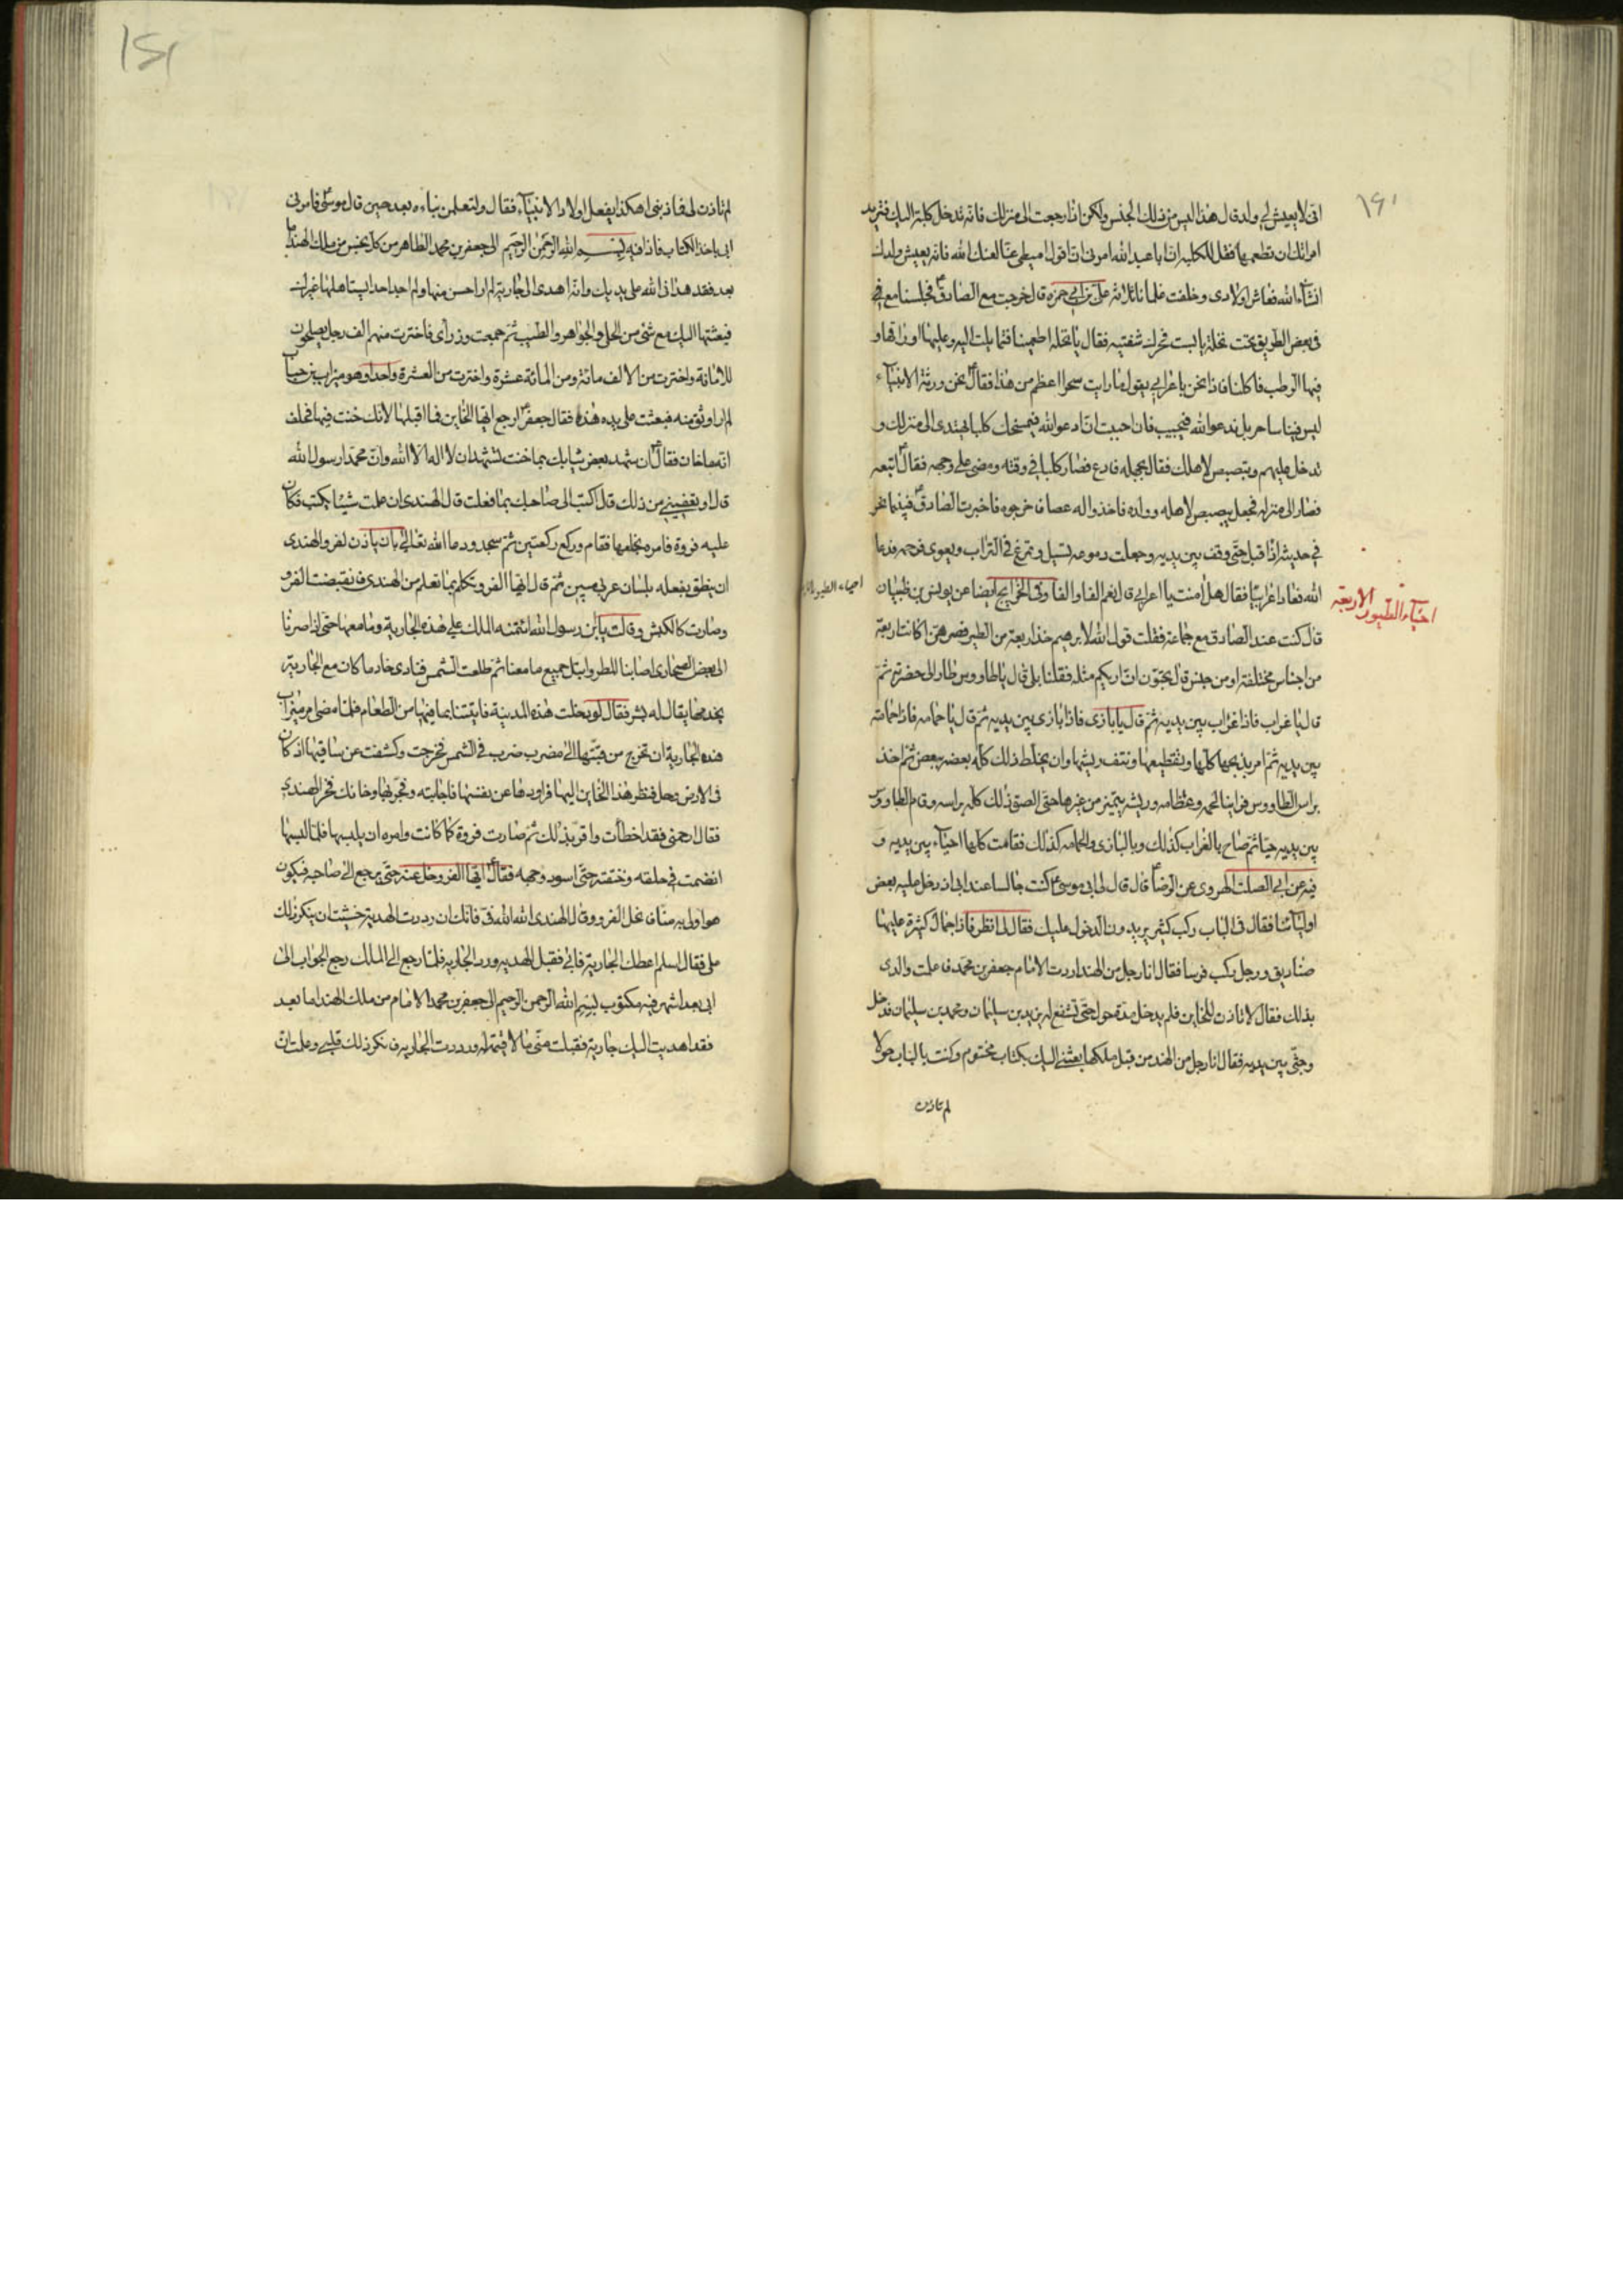 انى لا يعيش لي ولد قال هذا ليس من ذلك الجنس ولكن اذا رجعت الى منزلك فانه تدخل كلبة اليك فتريد
امراتك ان تطعمها فقل للكلبه ان ابا عبد الله امرنى ان اقول اميطى عنا لعنك الله فانه يعيش ولدك
انشاء الله فعاش اولادى وخلفت غلمانا ثلاثه على بن ابي حمزه قال خرجت مع الصادق ع فجلسنا معه
فى بعض الطريق تحت نخلة يابست فحرك شفتيه فقال يا نخله اطعمينا فتمايلت اليه وعليها اوراقها و
فيها الرطب فاكلنا فاذا نحن باعرابي يقول ما رايت سحرا اعظم من هذا فقال ع نحن ورثة الانبياء
ليس فينا ساحر بل ندعو الله فيجيب فان احببت ان ادعو الله فيمسخك كلبا تهتدى الى منزلك و
تدخل عليهم وتبصبص لاهلك فقال بجهله فادع فصار كلبا في وقته ومضى على وجهه فقال ع اتبعه
فصار الى منزله فجعل يبصبص لاهله وولده فاخذوا له عصا فاخرجوه فاخبرت الصادق ع فبينما نحن
في حديثه اذا قبل حتى وقف بين يديه وجعلت دموعه تسيل وتمرغ في التراب ويعوى فرحمه فدعا
الله فعاد اعرابيا فقال هل امنت يا اعرابي قال نعم الفا والفا وفى الخرايج ايضا عن يونس بن ظبيان
احياء الطيور الاربعه
احياء الطيور
قال كنت عند الصادق مع جماعة فقلت قول الله لابرهيم خذ اربعة من الطير فصرهن اكانت اربعة
من اجناس مختلفة او من جنس قال تحبون ان اريكم مثله فقلنا بلى قال يا طاووس طار الى حضرته ثم
قال يا غراب فاذا غراب بين يديه ثم قال يا بازى فاذا بازى بين يديه ثم قال يا حمامه فاذا حمامة
بين يديه ثم امر بذبحها كلها وتقطيعها ونتف ريشها وان يخلط ذلك كله بعضه ببعض ثم اخذ
براس الطاووس فراينا لحمه وعظامه وريشه يتميز من غيرها حتى الصق ذلك كله براسه وقام الطاووس
بين يديه حيا ثم صاح بالغراب كذلك وبالبازى والحمامه كذلك فقامت كلها احياء بين يديه و
فيه عن ابي الصلت الهروى عن الرضا ع قال قال لى ابى موسى ع كنت جالسا عند ابى اذ دخل عليه بعض
اوليائنا فقال فى الباب ركب كثير يريدون الدخول عليك فقال لى انظر فاذا جمال كثيرة عليها
صناديق ورجل ركب فرسا فقال انا رجل من الهند اردت الامام جعفر بن محمد فاعلمت والدى
بذلك فقال لا تاذن للخاين فلم يدخل مدة حولا حتى تشفع له يزيد بن سليمان ومحمد بن سليمان فدخل
وجثى بين يديه فقال انا رجل من الهند من قبل ملكها بعثنى اليك بكتاب مختوم وكنت بالباب حولا
لم تاذن
لم تاذن لى فما ذنبى اهكذا يفعل اولاد الانبياء فقال ولتعلمن نباءه بعد حين قال موسى ع فامرنى
ابى باخذ الكتاب فاذا فيه بسم الله الرحمن الرحيم الى جعفر بن محمد الطاهر من كل نجس من ملك الهند اما
بعد فقد هدانى الله على يديك وانه اهدى الى جارية لم ار احسن منها ولم اجد احدا يستاهلها غيرك
فبعثتها اليك مع شئ من الحلى والجواهر والطيب ثم جمعت وزرآى فاخترت منهم الف رجل يصلحون
للامانة واخترت من الالف مائة ومن المائة عشرة واخترت من العشرة واحدا وهو ميزاب بن حباب
لم ار اوثق منه فبعثت على يده هذه فقال جعفر ع ارجع ايها الخاين فما اقبلها لانك خنت فيها فحلف
انه ما خان فقال ع ان شهد بعض ثيابك بما خنت تشهد ان لا اله الا الله وان محمدا رسول الله
قال او تعفينى من ذلك قال اكتب الى صاحبك بما فعلت قال الهندى ان علمت شيئا فاكتب فكان
عليه فروة فامره بخلعها فقام وركع ركعتين ثم سجد ودعا الله تعالى بان ياذن لفرو الهندى
ان ينطق بفعله بلسان عربى مبين ثم قال ايها الفرو تكلم بما تعلم من الهندى فانقبضت الفرو
وصارت كالكبش وقالت يا ابن رسول الله ائتمنه الملك على هذه الجارية وما معها حتى اذا صرنا
الى بعض الصحارى اصابنا المطر وابتل جميع ما معنا ثم طلعت الشمس فنادى خادما كان مع الجارية
يخدمها يقال له بشر فقال لو دخلت هذه المدينة فاتيتنا بما فيها من الطعام فلما مضى امر ميزاب
هذه الجارية ان تخرج من قبتها الى مضرب ضرب فى الشمس فخرجت وكشفت عن ساقيها اذ كان
فى الارض وحل فنظر هذا الخاين اليها فراودها عن نفسها فاجابته وفجر بها وخانك فخر الهندى
فقال ارحمنى فقد اخطات واقر بذلك ثم صارت فروة كما كانت وامره ان يلبسها فلما لبسها
انضمت فى حلقه وخنقته حتى اسود وجهه فقال ع ايها الفرو خل عنه حتى يرجع الى صاحبه فيكون
هو اولى به منا فانحل الفرو وقال الهندى الله الله فى فانك ان رددت الهدية خشيت ان ينكر ذلك
على فقال اسلم اعطك الجارية فابى فقبل الهديه ورد الجاريه فلما رجع الى الملك رجع الجواب الى
ابى بعد اشهر فيه مكتوب بسم الله الرحمن الرحيم الى جعفر بن محمد الامام من ملك الهند اما بعد
فقد اهديت اليك جارية فقبلت منى ما لا قيمة له ورددت الجاريه فانكر ذلك قلبى وعلمت ان